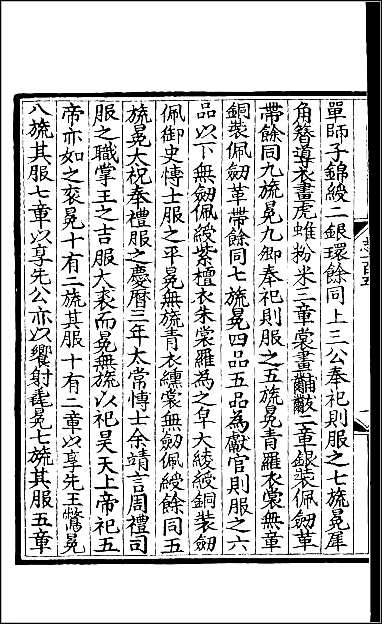 單師子錦綬二銀環餘同上三公奉祀則服之七旒冕犀
角簪導衣畫虎蜼粉米三章裳畫黼黻二章銀裝佩劒革
帶餘同九旒冕九卿奉祀則服之五旒冕青羅衣裳無章
銅裝佩劒革帶餘同七旒冕四品五品為獻官則服之六
品以下無劒佩綬紫檀衣朱裳羅為之皁大綾綬銅裝劒
佩御史博士服之平冕無旒青衣纁裳無劒佩綬餘同五
旒冕太祝奉禮服之慶曆三年太常博士余靖言周禮司
服之職掌王之吉服大裘而冕無旒以祀昊天上帝祀五
帝亦如之衮冕十有二旒其服十有二章以享先王鷩冕
八旒其服七章以享先公亦以饗射毳冕七旒其服五章